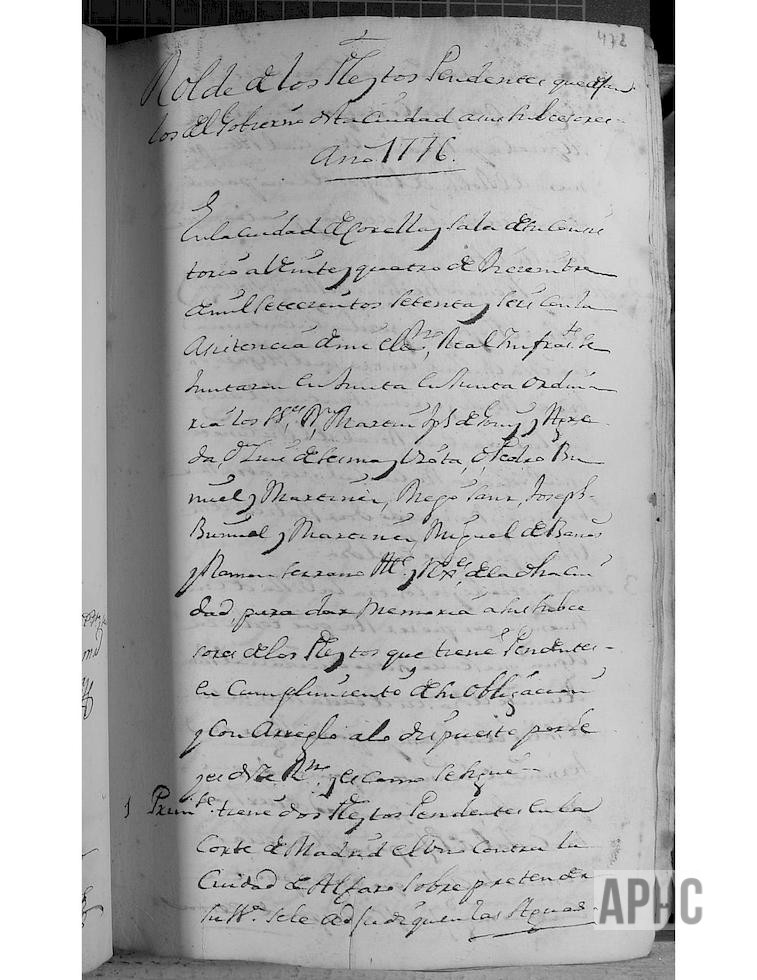 472
Rolde de los Pleytos Pendentes que
los del Gobierno desta Ciudad a sus subcesores
Año 1776.
En la Ciudad de Corella y Sala de su Consis
torio a veinte y quatro de Diciembre
de mil setecientos setenta y seis con la
Asistencia de mi el Esno Real Infrato se
Juntaron en Junta Ordina
ria los SSes Dn Martin Jph de y
da, Dn Luis de Sesma y , Dn Pedro Bu
ñuel y Martinez, Diego Sanz, Joseph
Buñuel y Martinez, Miguel de Bienes
y Ramon Serrano Alle y Rexes de la dha Ciu
dad, para dar Memoria a sus subce
sores de los Pleytos que tiene Pendentes
en Cumplimiento de su Obligacion
y con Arreglo a lo dispuesto por Le
yes de este Rno, y es como se sigue
1 Primte tiene dos Pleytos Pendentes en la
Corte de Madrid el uno contra la
Ciudad de Alfaro sobre pretender
se le adjudiquen las Aguas
APHC